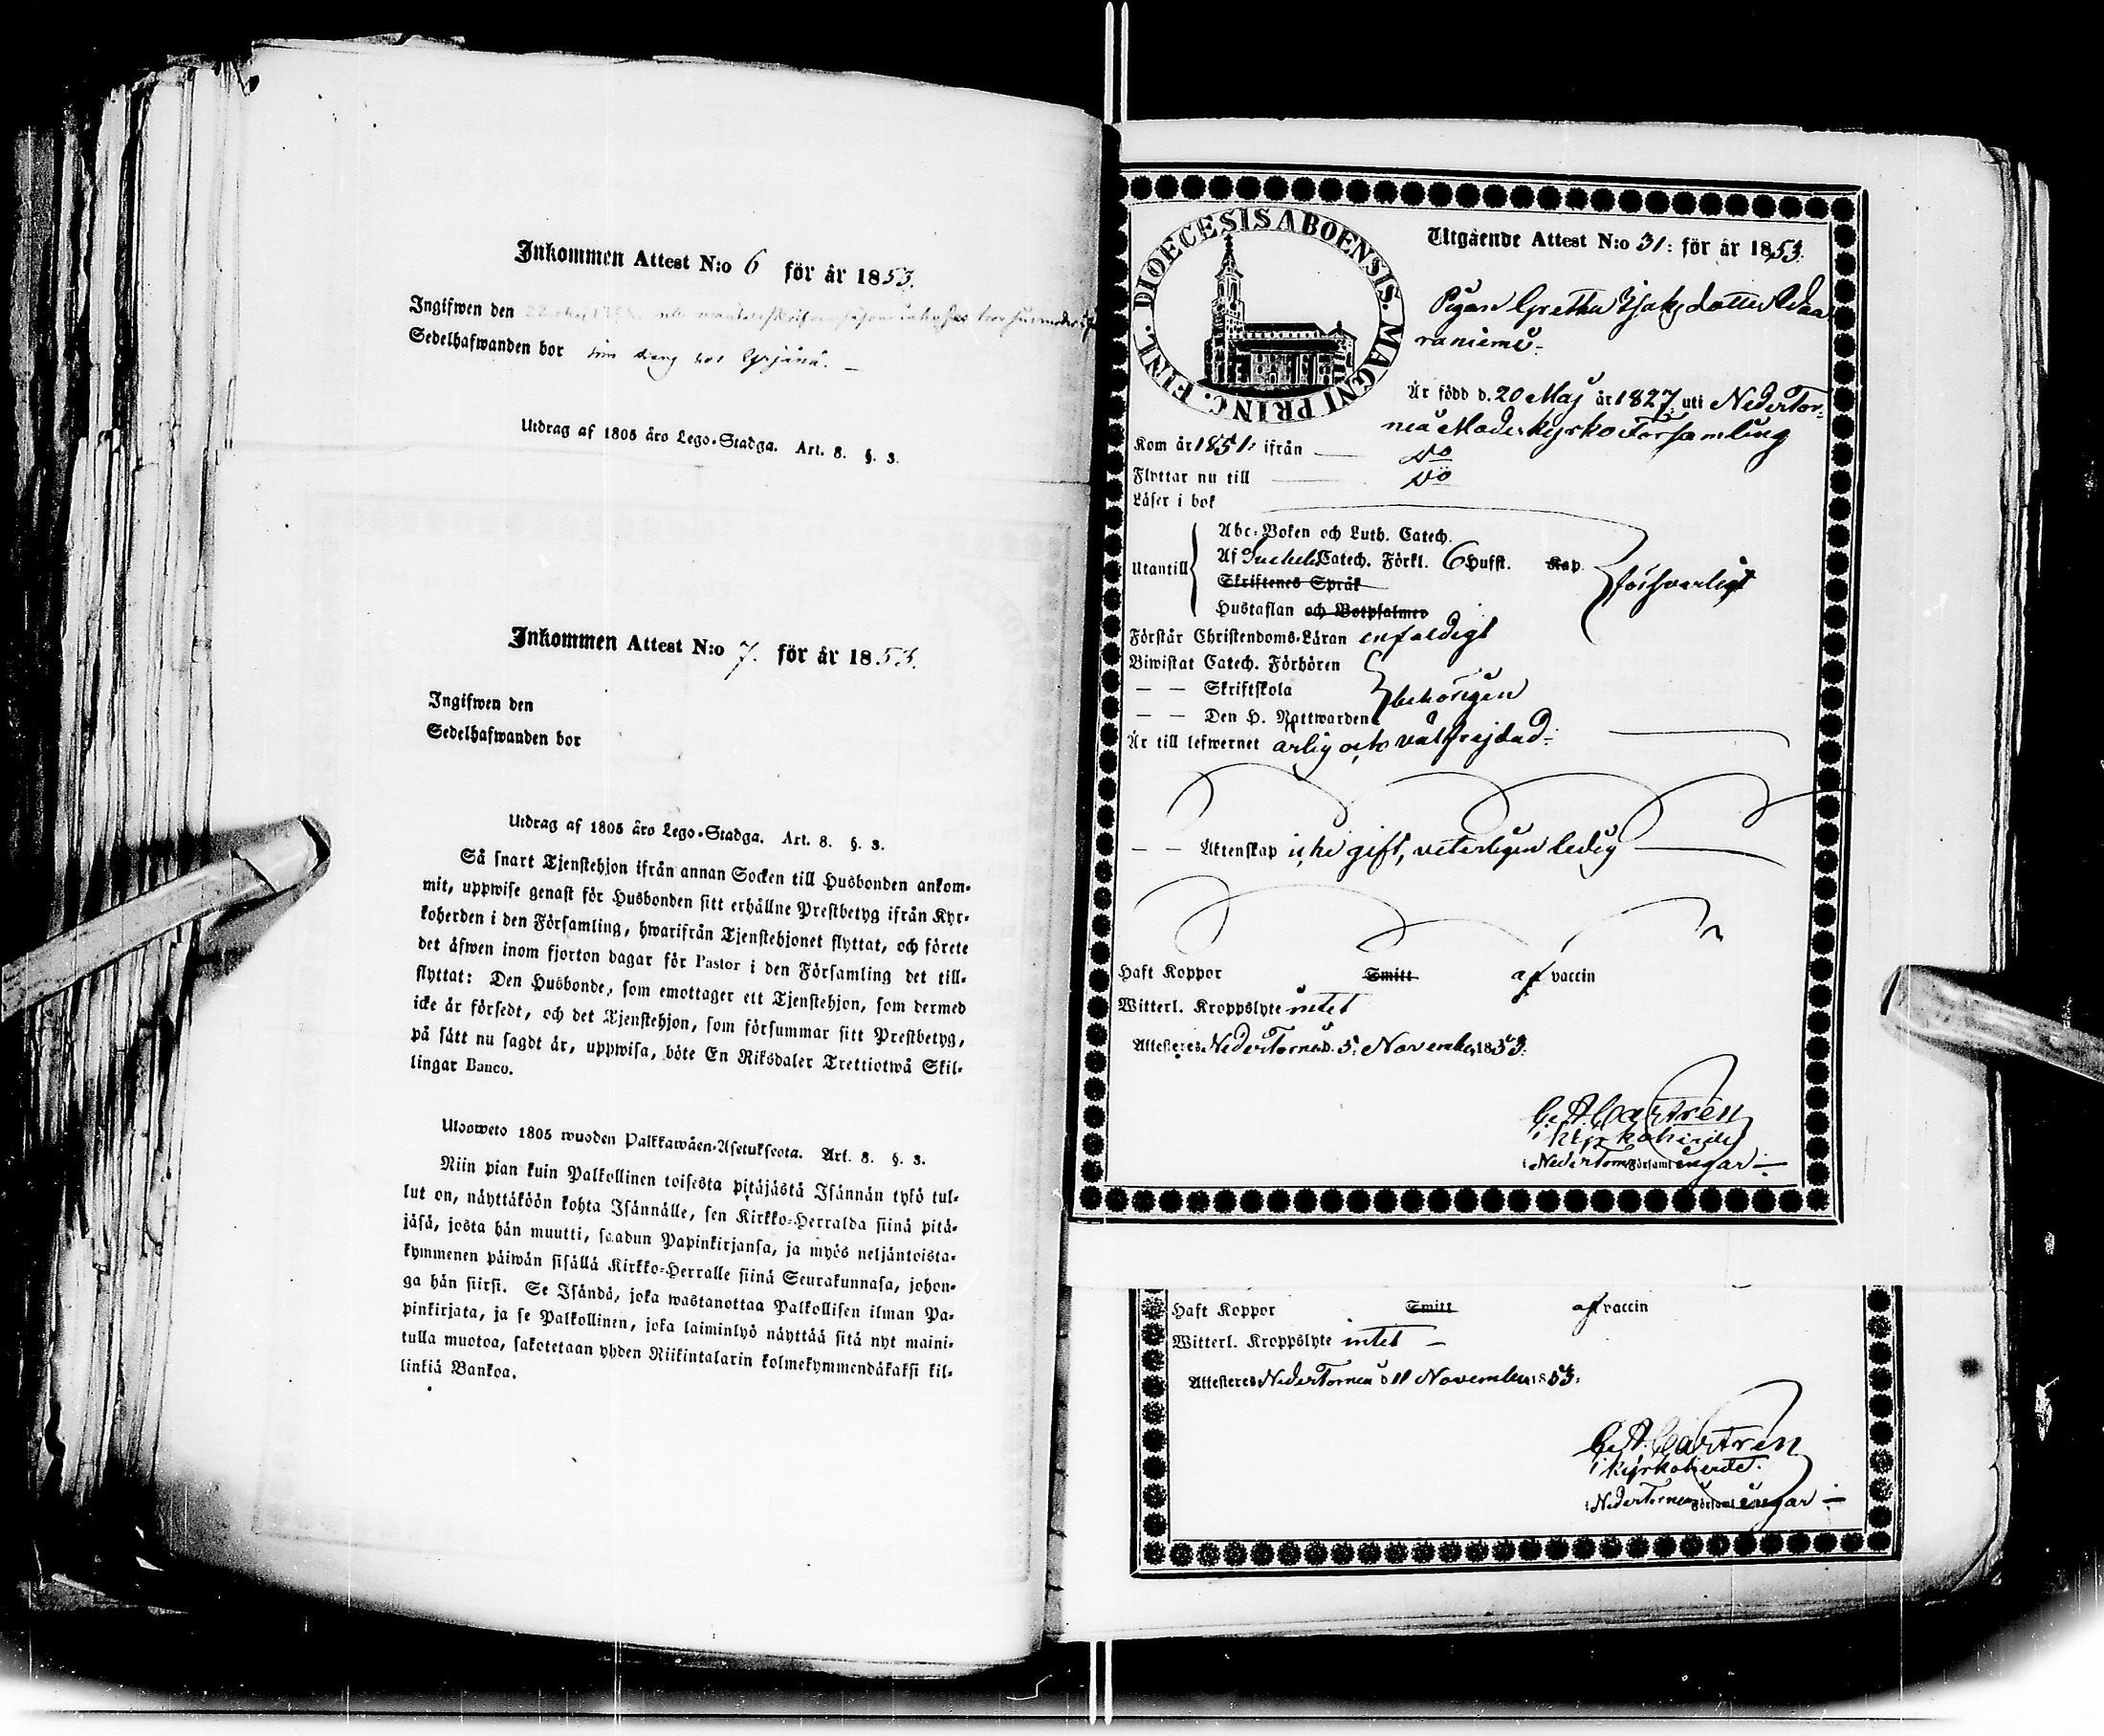 Inkommen Attest N:o 6 för år 1853.
Ingifwen den
Sedelhafwanden bor
Utdrag af 1805 åro Lego-Stadga. Art. 8. §. 3.
Inkommen Attest N:o 7. för år 1853.
Ingifwen den
Sedelhafwanden bor
Utdrag af 1805 åro Lego-Stadga. Art. 8. §. 3.
Så snart Tjenstehjon ifrån annan Socken till Husbonden ankom-
mit, uppwise genast för Husbonden sitt erhållne Prestbetyg ifrån Kyr-
koherden i den Församling, hwarifrån Tjenstehjonet flyttat, och förete
det äfwen inom fjorton dagar för Pastor i den Församling det till-
flyttat: Den Husbonde, som emottager ett Tjenstehjon, som dermed
icke är försedt, och det Tjenstehjon, som försummar sitt Prestbetyg,
på sätt nu sagdt är, uppwisa, böte En Riksdaler Trettiotwå Skil-
lingar Banco.
Ulosweto 1805 wuoden Palkkawäen-Asetukseota. Art. 8. §. 3.
Niin pian kuin Palkollinen toisesta pitäjästä Isännän tykö tul-
lut on, näyttäköön kohta Isännälle, sen Kirkko-Herralda siinä pitä-
jäsä, josta hän muutti, saadun Papinkirjansa, ja myös neljäntoista-
kymmenen päiwän sisällä Kirkko-Herralle siinä Seurakunnasa, johon-
ga hän siirsi. Se Isändä, joka wastanottaa Palkollisen ilman Pa-
pinkirjata, ja se Palkollinen, joka laiminlyö näyttää sitä nyt maini-
tulla muotoa, sakotetaan yhden Riikintalarin kolmekymmendäkaksi kil-
linkiä Bankoa.
FINL. DIOECESIS ABOENSIS. MAGNI PRINC.
Utgående Attest N:o 31: för år 1853.
Pigan Gretha Isaks dotter Waa
raniemi.
Är född d. 20 Maj år 1827, uti NederTor-
neå Moderkyrko Församling
Kom år 1851: ifrån D:o
Flyttar nu till D:o
Läser i bok
Utantill
Abc-Boken och Luth. Catech.
Af Catech. Förkl. 6 Hufst. Kap.
Skriftenes Språk
försvarligt
Hustaflan och Botpsalmer
Förstår Christendoms-Läran enfaldigt
Biwistat Catech. Förhören
— — Skriftskola
behörigen
— — Den H. Nattwarden
Är till lefwernet ärlig och välfrejdad.
— — Äktenskap icke gift, veterligen ledig
Haft Koppor Smitt af vaccin
Witterl. Kroppslyte intet
Attesteres NederTorneå d. 5. November 1853.
C. A. Castrén
Kyrkoherde
i NederTorneå Församlingar.
Haft Koppor Smitt af vaccin
Witterl. Kroppslyte intet —
Attesteres NederTorneå d 11 November 1853.
C. A. Castrén
Kyrkoherde.
i NederTorneå Församlingar —